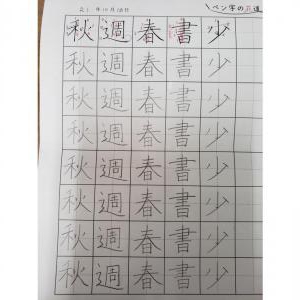 ペン字の
秋 週 春 書 少
秋 週 春 書 少
秋 週 春 書 少
秋 週 春 書 少
秋 週 春 書 少
秋 週 春 書 少
秋 週 春 書 少
秋 週 春 書 少